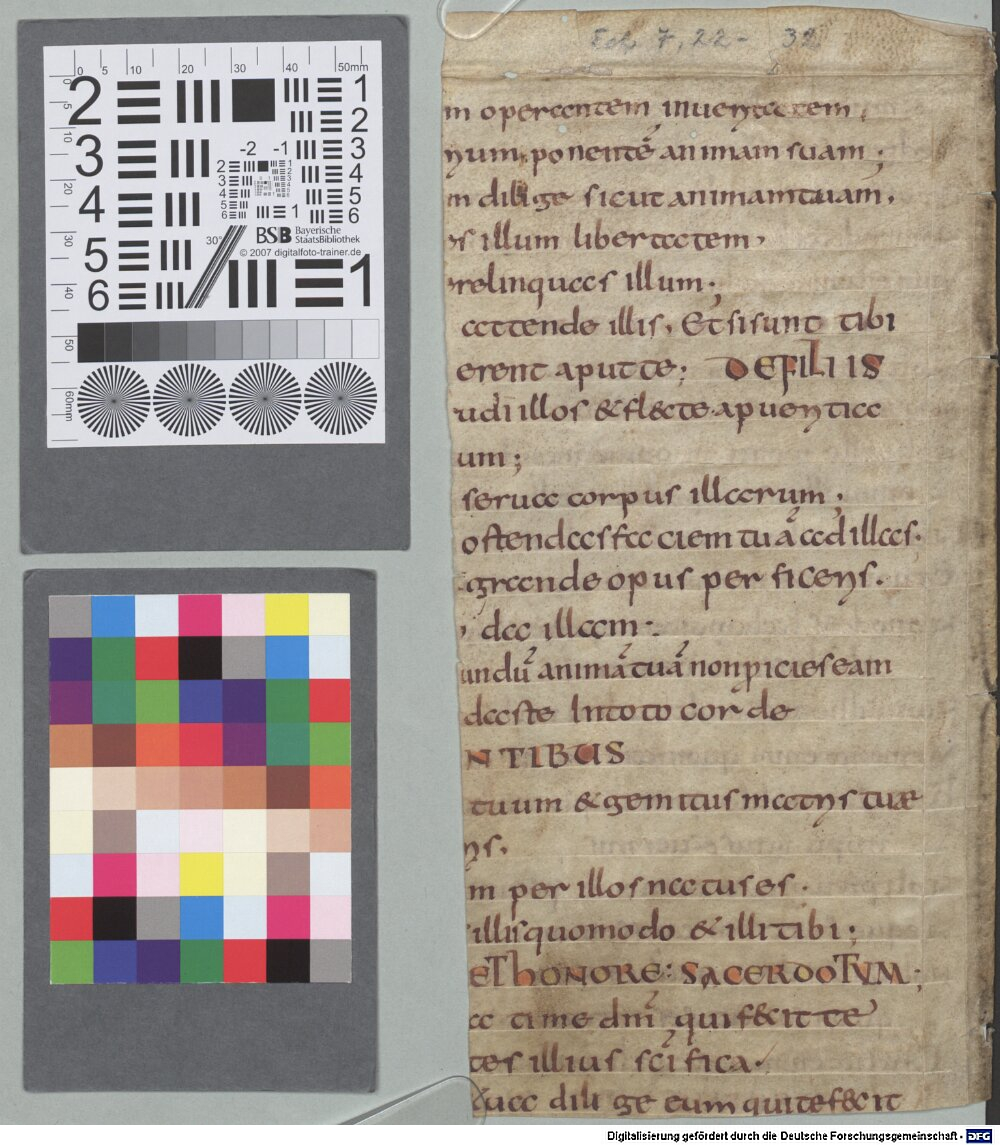 Ecl. 7, 22 - 32
m operantem inuentatem,
num ponentē animam suam;
m dilige sicut animam tuam,
es illum libertatem,
relinquas illum;
attende illis, Et si sunt tibi
erent aput te; DE FILIIS
udi illos & flecte apueritia
um;
serua corpus illarum;
ostendas faciem tuā ad illas.
grande opus perficens.
da illam;
undū animā tuā non picies eam
daste In toto corde
NTIBUS
tuum & gemitus matris tuæ
ris.
m per illos natus es.
illis quomodo & illi tibi;
ET hONORE: SACERDOTVM;
a time dnī qui fecit te
tes illius scifica.
tua dilige eum qui te fecit
0 5 10 20 30 40 50mm
5 10 20 30 40 50 60mm
2 3 4 5 6
1 2 3 4 5 6
-2 -1
1
30°
BSB Bayerische
StaatsBibliothek
© 2007 digitalfoto-trainer.de
Digitalisierung gefördert durch die Deutsche Forschungsgemeinschaft - DFG